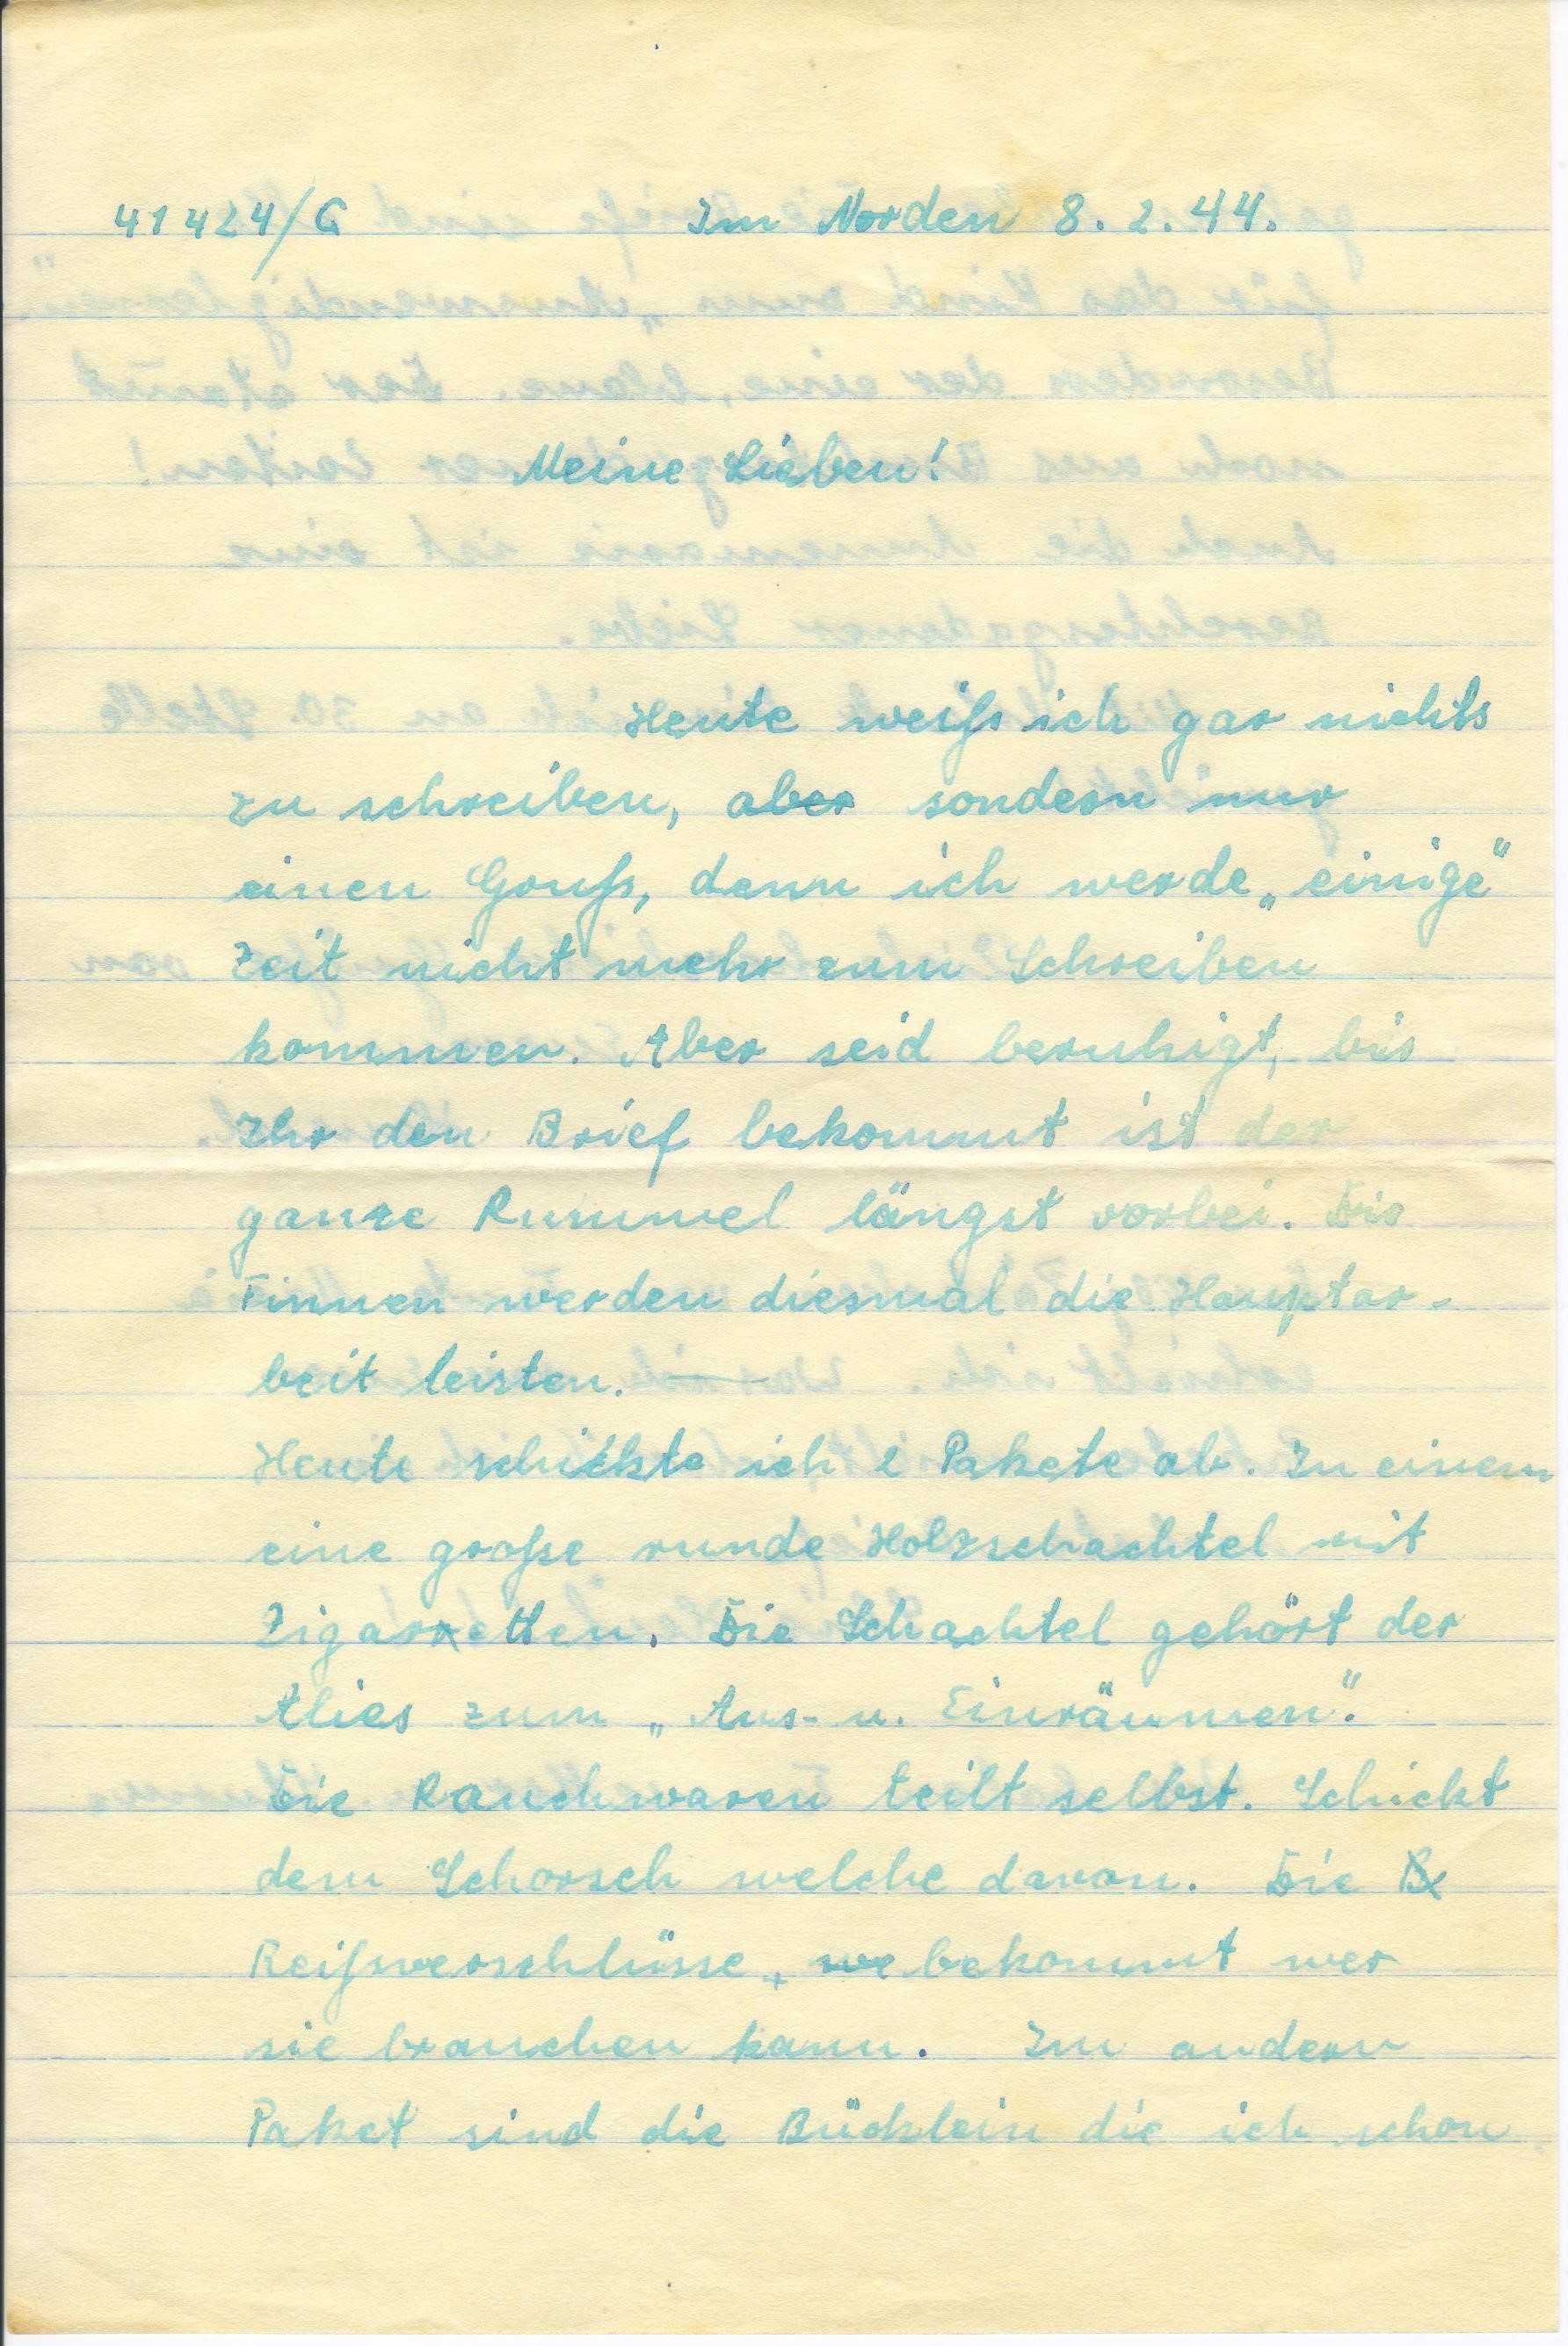 41424/G Im Norden 8.2.44.
Meine Lieben!
Heute weiß ich gar nichts
zu schreiben, aber sondern nur
einen Gruß, denn ich werde „einige“
Zeit nicht mehr zum Schreiben
kommen. Aber seid beruhigt, bis
Ihr den Brief bekommt ist der
ganze Rummel längst vorbei. Die
Finnen werden diesmal die Hauptar-
beit leisten. —
Heute schickte ich 2 Pakete ab. In einem
eine große runde Holzschachtel mit
Zigarretten. Die Schachtel gehört der
Alies zum „Aus- u. Einräumen“.
Die Rauchwaren teilt selbst. Schickt
dem Schorsch welche davon. Die B
Reißverschlüsse, we bekommt wer
sie brauchen kann. Im andern
Paket sind die Büchlein die ich schon